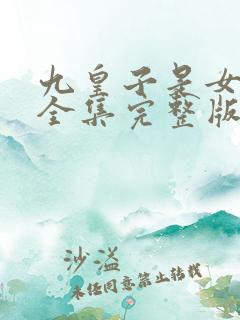 九皇子是女
全集完整版
沙溢
未经同意禁止转载